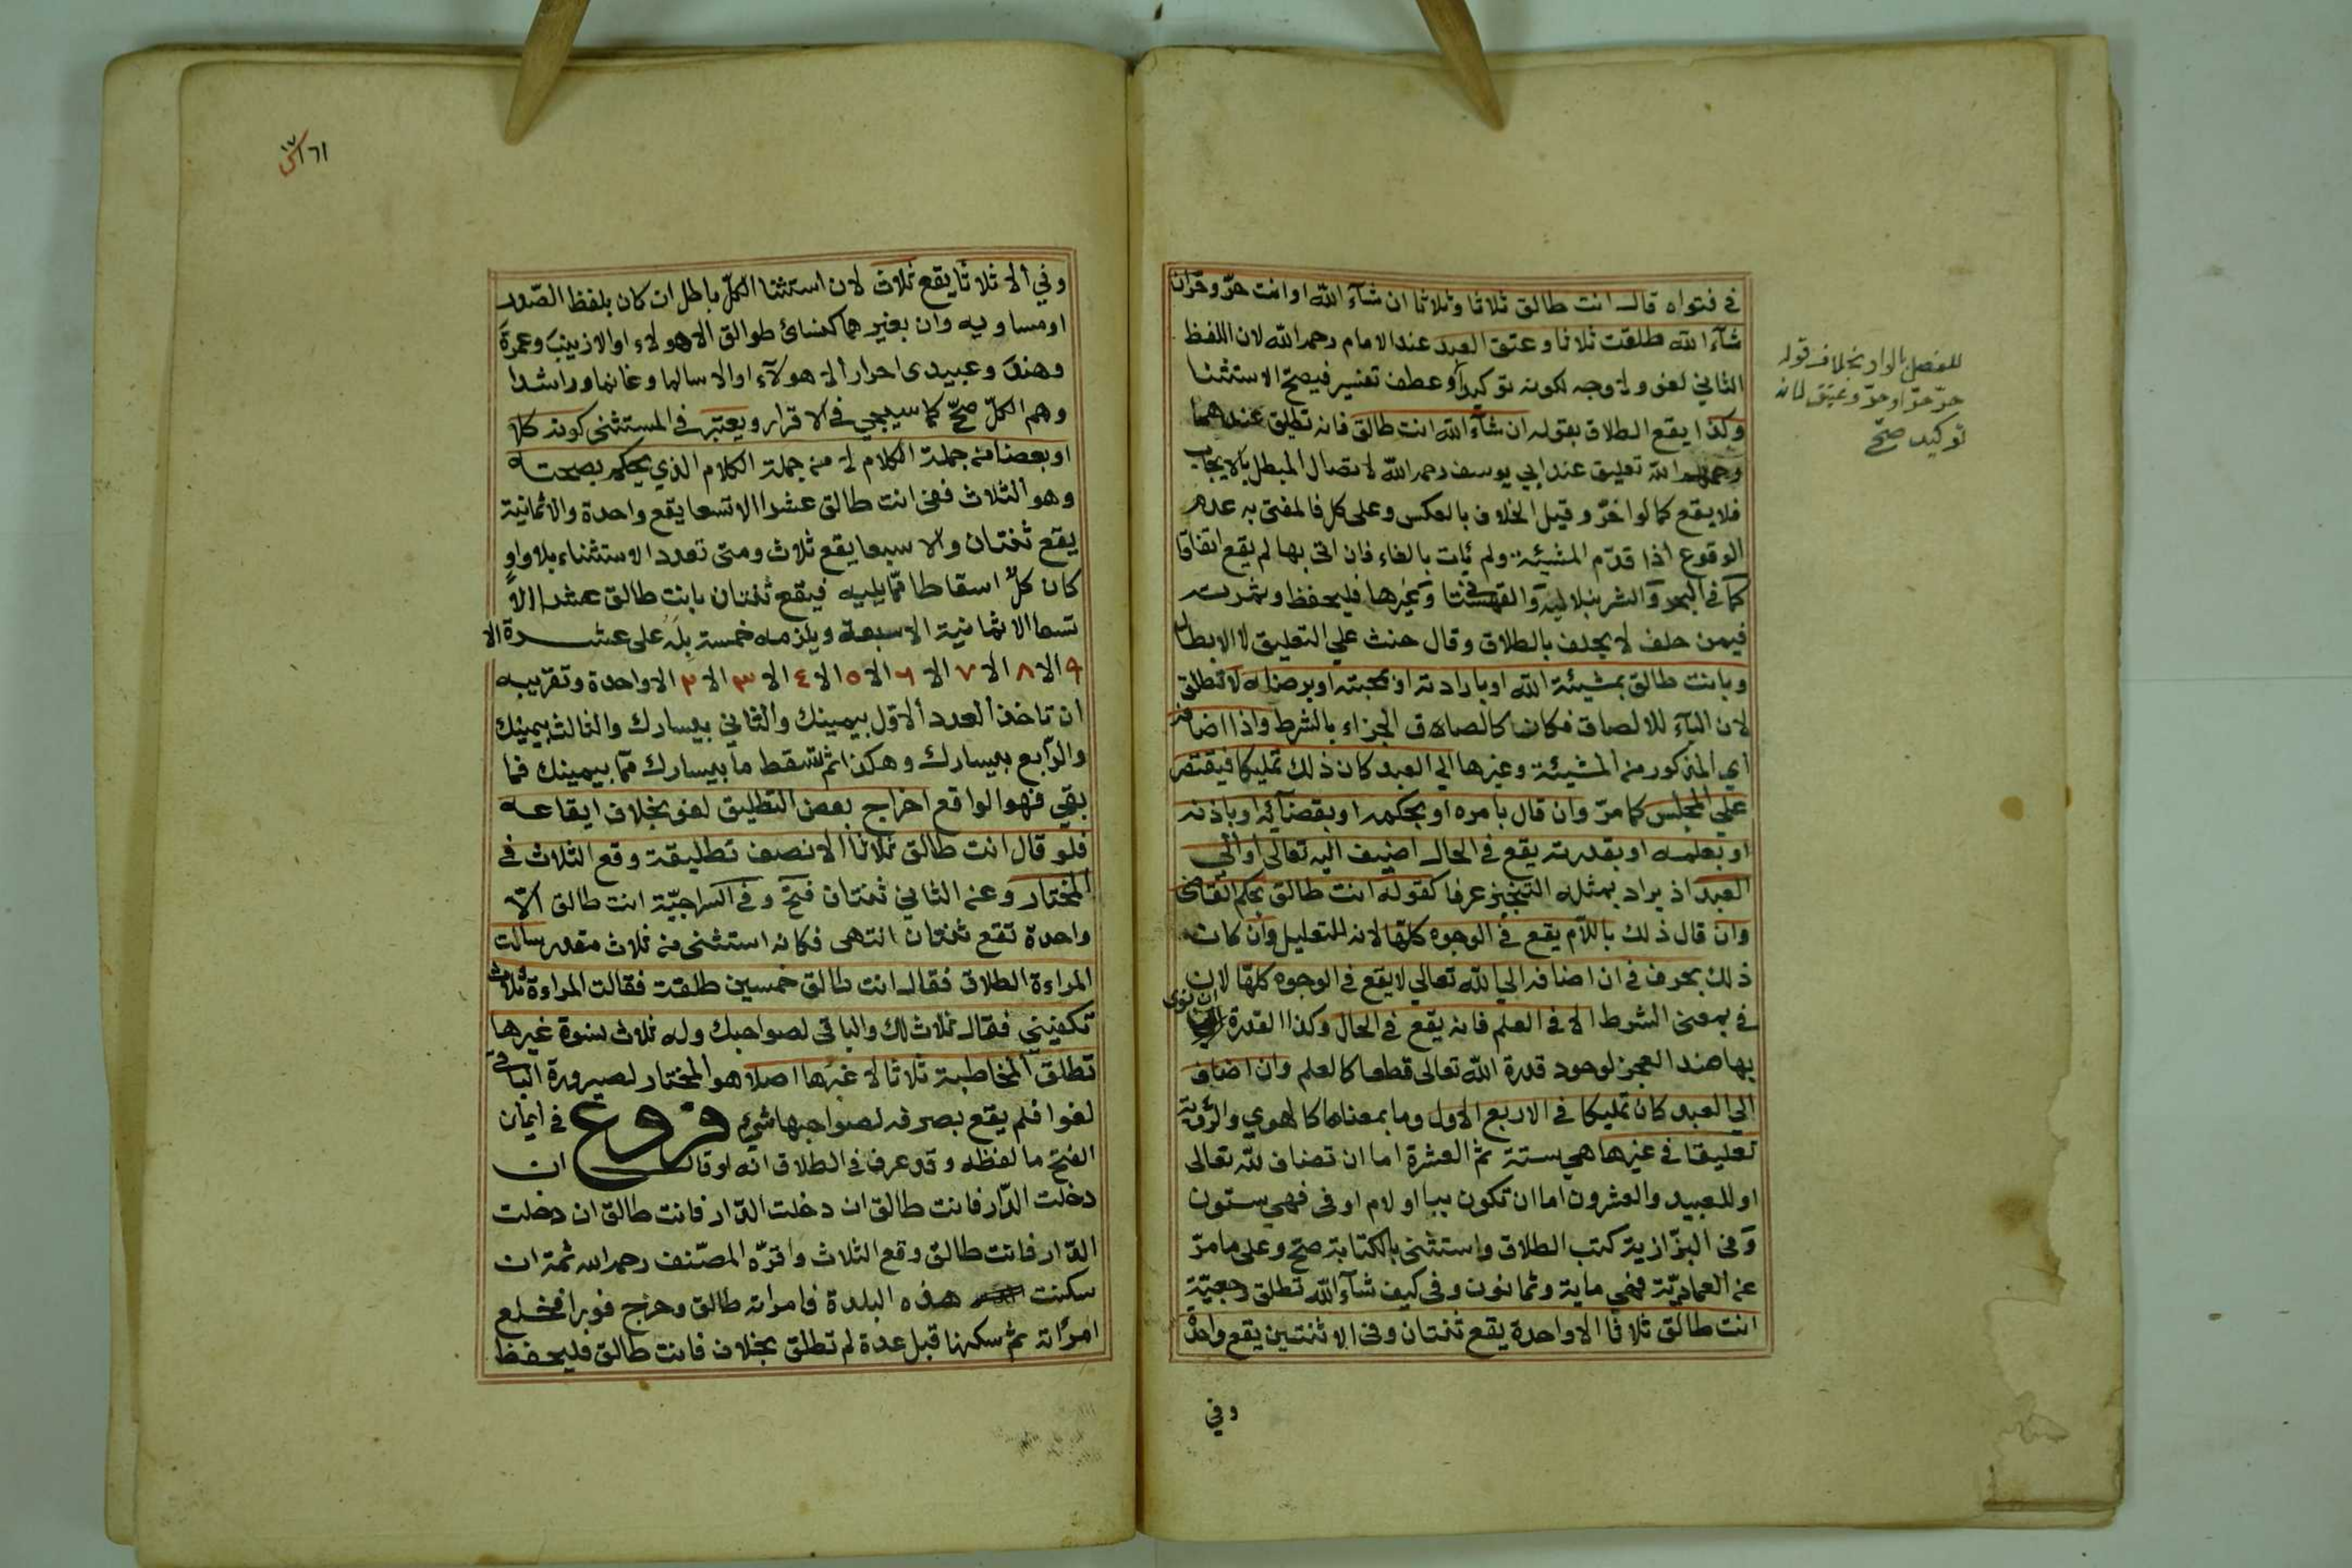 في فتواه قال انت طالق ثلاثا وثلاثا ان شآء الله او انت حرّ وحرّ ان
شآء الله طلقت ثلاثا وعتق العبد عند الامام رحمه الله لان اللفظ
الثاني لغو ولا وجه لكونه توكيدا او عطف تفسير فيصح الاستثنا
وكذا يقع الطلاق بقوله ان شآء الله انت طالق فانه تطليق عندهما
الله تعليق عند ابي يوسف رحمه الله لاتصال المبطل بالايجاب
فلا يقع كما لو اخّر وقيل الخلاف بالعكس وعلى كل فالمفتى به عدم
الوقوع اذا قدّم المشيئة ولم يات بالفاء فان اتى بها لم يقع اتفاقا
كما في البحر والشرنبلالية والقهستاني وغيرها فليحفظ وثمرته
فيمن حلف لا يحلف بالطلاق وقال حنث على التعليق لا الابطال
وبانت طالق بمشيئة الله او بارادته او محبته او برضاه لا تطلق
لان البآء للالصاق فكان كالصاق الجزاء بالشرط واذا اضافه
اي المذكور من المشيئة وغيرها الي العبد كان ذلك تمليكا فيقتصر
علي المجلس كما مرّ وان قال بامره او بحكمه او بقضآئه او باذنه
او بعلمه او بقدرته يقع في الحال اضيف اليه تعالى او الي
العبد اذ يراد بمثله التنجيز عرفا كقوله انت طالق بحكم القاضي
وان قال ذلك باللآم يقع في الوجوه كلها لانه للتعليل وان كان
ذلك بحرف في ان اضافه الي الله تعالي لا يقع في الوجوه كلها لان
في بمعنى الشرط الا في العلم فانه يقع في الحال وكذا القدرة ان نوى
بها ضد العجز لوجود قدرة الله تعالى قطعا كالعلم وان اضاف
الي العبد كان تمليكا في الاربع الاول وما بمعناها كالهوي والرؤية
تعليقا في غيرها هي ستة ثم العشرة اما ان تضاف لله تعالى
او للعبيد والعشرون اما ان تكون ببا او لام او في فهي ستون
وفي البزّازية كتب الطلاق واستثنى بالكتابة صحّ وعلى ما مرّ
عن العمادية فهي ماية وثمانون وفي كيف شآء الله تطلق رجعيّة
انت طالق ثلاثا الا واحدة يقع ثنتان وفي الا ثنتين يقع واحدة
وفي
للفصل بالواو بخلاف قوله
حرّ حرّ او حرّ وعتيق لانه
توكيد صحّ
١٦١
وفي الا ثلاثا يقع ثلاث لان استثنا الكلّ باطل ان كان بلفظ الصّدر
او مساويه وان بغيرهما كنسائ طوالق الا هولاء او الا زينب وعمرة
وهند وعبيدي احرار الا هولآء او الا سالما وغانما وراشدا
وهم الكلّ صحّ كما سيجي في الاقرار ويعتبر في المستثنى كونه كلا
او بعضا من جملة الكلام لا من جملة الكلام الذي يحكم بصحته
وهو الثلاث ففي انت طالق عشرا الا تسعا يقع واحدة والا ثمانية
يقع ثنتان والا سبعا يقع ثلاث ومتى تعدد الاستثناء بلا واو
كان كلّ اسقاطا ممّا يليه فيقع ثنتان بانت طالق عشرا الا
تسعا الا ثمانية الا سبعة ويلزمه خمسة بله علي عشرة الا
٩ الا ٨ الا ٧ الا ٦ الا ٥ الا ٤ الا ٣ الا ٢ الا واحدة وتقريبه
ان تاخذ العدد الاوّل بيمينك والثاني بيسارك والثالث بيمينك
والرّابع بيسارك وهكذا ثم تسقط ما بيسارك ممّا بيمينك فما
بقي فهو الواقع اخراج بعض التطليق لغو بخلاف ايقاعه
فلو قال انت طالق ثلاثا الا نصف تطليقة وقع الثلاث في
المختار وعن الثاني ثنتان فتح وفي السراجيّة انت طالق الّا
واحدة تقع ثنتان انتهى فكانه استثنى من ثلاث مقدر سالت
المراءة الطلاق فقال انت طالق خمسين طلقة فقالت المراءة ثلاث
تكفيني فقال ثلاث لك والباقي لصواحبك وله ثلاث نسوة غيرها
تطلق المخاطبة ثلاثا لا غيرها اصلا هو المختار لصيرورة الباقي
لغوا فلم يقع بصرفه لصواحبها شيء فروع في ايمان
الفتح ما لفظه وقد عرف في الطلاق انه لو قال ان
دخلت الدّار فانت طالق ان دخلت الدّار فانت طالق ان دخلت
الدّار فانت طالق وقع الثلاث واقرّه المصّنف رحمه الله ثمة ان
سكنت هذه البلدة فامراته طالق وخرج فورا فخلع
امراته ثم سكنها قبل عدة لم تطلق بخلاف فانت طالق فليحفظ